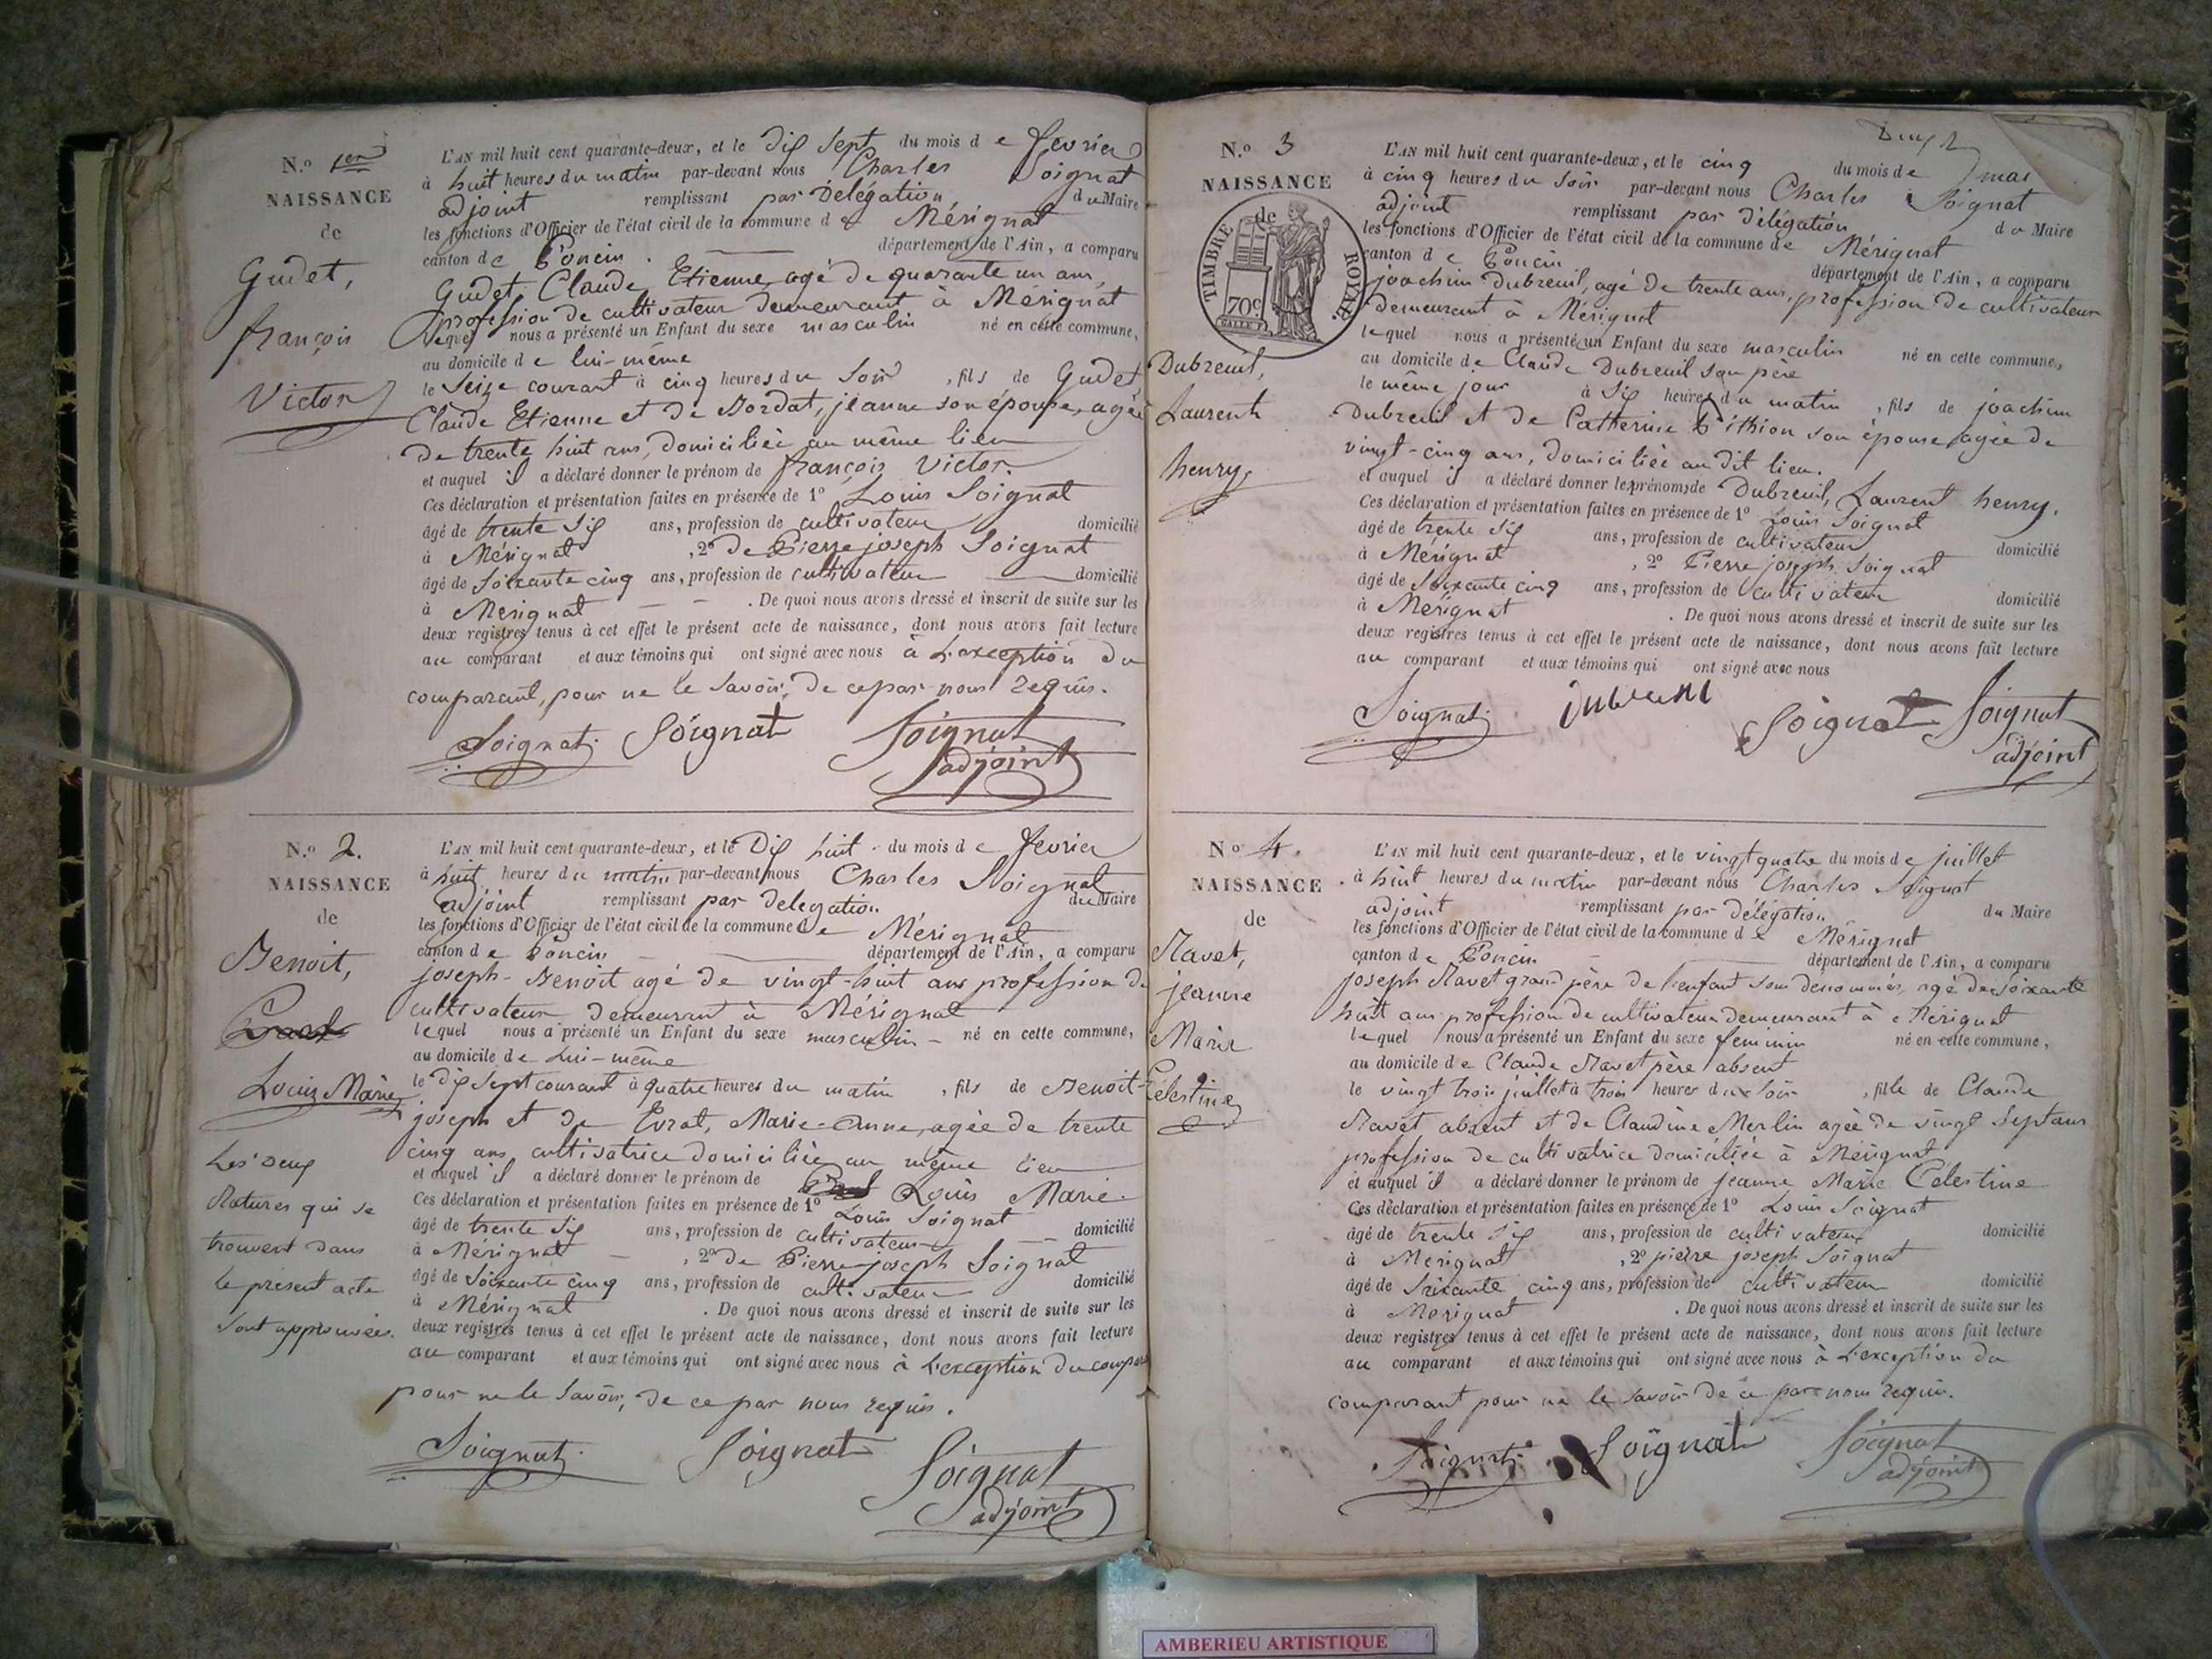 N.º 1er
NAISSANCE
de
Gudet,
françois
Victor
L'AN mil huit cent quarante-deux, et le dix sept du mois de fevrier
à huit heures du matin par-devant nous Charles Soignat
adjoint remplissant par Délégation du Maire
les fonctions d'Officier de l'état civil de la commune de Mérignat
canton de Poncin. département de l'Ain, a comparu
Gudet, Claude, Etienne, agé de quarante un ans,
profession de cultivateur demeurant à Mérignat
lequel nous a présenté un Enfant du sexe masculin né en cette commune,
au domicile de lui-même
le Seize courant à cinq heures du Soir, fils de Gudet
Claude Etienne et de Bordat, jeanne son épouse, agée
de trente huit ans, domiciliée au même lieu
et auquel il a déclaré donner le prénom de françois Victor.
Ces déclaration et présentation faites en présence de 1º Louis Soignat
âgé de trente six ans, profession de cultivateur domicilié
à Mérignat, 2º de Pierre joseph Soignat
âgé de Soixante cinq ans, profession de cultivateur domicilié
à Mérignat. De quoi nous avons dressé et inscrit de suite sur les
deux registres tenus à cet effet le présent acte de naissance, dont nous avons fait lecture
au comparant et aux témoins qui ont signé avec nous à L'exception du
comparant, pour ne le savoir, de ce par nous requis.
Soignat Soignat Soignat
adjoint
N.º 2.
NAISSANCE
de
Benoit,
Louis Marie
Les deux
Ratures qui se
trouvent dans
le présent acte
sont approuvées.
L'AN mil huit cent quarante-deux, et le Dix huit du mois de fevrier
à huit heures du matin par-devant nous Charles Soignat
adjoint remplissant par delegation du Maire
les fonctions d'Officier de l'état civil de la commune de Mérignat
canton de Poncin département de l'Ain, a comparu
joseph-Benoit agé de vingt-huit ans profession de
cultivateur demeurant à Mérignat
lequel nous a présenté un Enfant du sexe masculin né en cette commune,
au domicile de Lui-même
le dix Sept courant à quatre heures du matin, fils de Benoit-
joseph et de Evrat, Marie-Anne, agée de trente
cinq ans, cultivatrice domiciliée au même lieu
et auquel il a déclaré donner le prénom de Louis Marie.
Ces déclaration et présentation faites en présence de 1º Louis Soignat
âgé de trente Six ans, profession de cultivateur domicilié
à Mérignat, 2º de Pierre-joseph Soignat
âgé de Soixante cinq ans, profession de cultivateur domicilié
à Mérignat. De quoi nous avons dressé et inscrit de suite sur les
deux registres tenus à cet effet le présent acte de naissance, dont nous avons fait lecture
au comparant et aux témoins qui ont signé avec nous à L'exception du
pour ne le Savoir, de ce par nous requis.
Soignat Soignat Soignat
adjoint
N.º 3
NAISSANCE
de
TIMBRE ROYAL
70c
Dubreuil,
Laurent
henry,
L'AN mil huit cent quarante-deux, et le cinq du mois de mai
à cinq heures du Soir par-devant nous Charles Soignat
adjoint remplissant par délégation du Maire
les fonctions d'Officier de l'état civil de la commune de Mérignat
canton de Poncin département de l'Ain, a comparu
joachim Dubreuil, agé de trente ans, profession de cultivateur
demeurant à Mérignat
lequel nous a présenté un Enfant du sexe masculin né en cette commune,
au domicile de Claude Dubreuil son père
le même jour à Six heures du matin, fils de joachim
Dubreuil et de Catherine Pithion son épouse, agée de
vingt-cinq ans, domiciliée au dit lieu.
et auquel il a déclaré donner le prénom de Dubreuil, Laurent henry.
Ces déclaration et présentation faites en présence de 1º Louis Soignat
âgé de trente Six ans, profession de cultivateur domicilié
à Mérignat, 2º Pierre joseph Soignat
âgé de Soixante cinq ans, profession de cultivateur domicilié
à Mérignat. De quoi nous avons dressé et inscrit de suite sur les
deux registres tenus à cet effet le présent acte de naissance, dont nous avons fait lecture
au comparant et aux témoins qui ont signé avec nous
Soignat Dubreuil Soignat Soignat
adjoint
N.º 4.
NAISSANCE
de
Ravet,
jeanne
Marie
Célestine
L'AN mil huit cent quarante-deux, et le vingt quatre du mois de juillet
à huit heures du matin par-devant nous Charles Soignat
adjoint remplissant par délégation du Maire
les fonctions d'Officier de l'état civil de la commune de Mérignat
canton de Poncin département de l'Ain, a comparu
joseph Ravet grand père de l'enfant sous denommée, agé de soixante
huit ans profession de cultivateur demeurant à Mérignat
lequel nous a présenté un Enfant du sexe feminin né en cette commune,
au domicile de Claude Ravet père absent
le vingt trois juillet à trois heures du soir, fille de Claude
Ravet absent et de Claudine Merlin agée de vingt Sept ans
profession de cultivatrice domiciliée à Mérignat
et auquel il a déclaré donner le prénom de jeanne Marie Célestine
Ces déclaration et présentation faites en présence de 1º Louis Soignat
âgé de trente Six ans, profession de cultivateur domicilié
à Mérignat, 2º pierre joseph Soignat
âgé de Soixante cinq ans, profession de cultivateur domicilié
à Mérignat. De quoi nous avons dressé et inscrit de suite sur les
deux registres tenus à cet effet le présent acte de naissance, dont nous avons fait lecture
au comparant et aux témoins qui ont signé avec nous à L'exception du
comparant pour ne le savoir de ce par nous requis.
Soignat Soignat Soignat
adjoint
AMBERIEU ARTISTIQUE